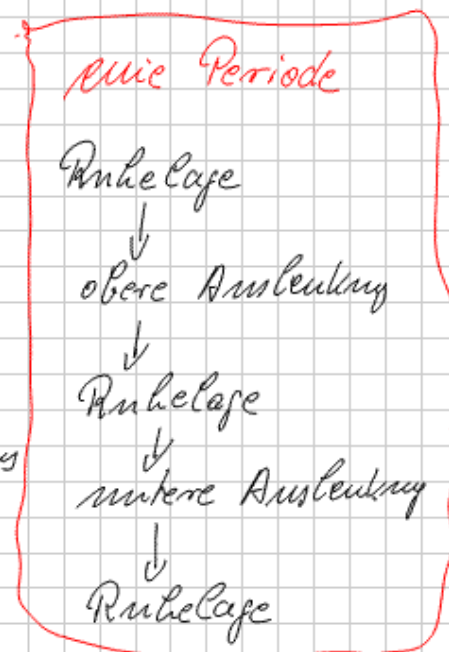 eine Periode
Ruhelage
↓
obere Auslenkung
↓
Ruhelage
↓
untere Auslenkung
↓
Ruhelage